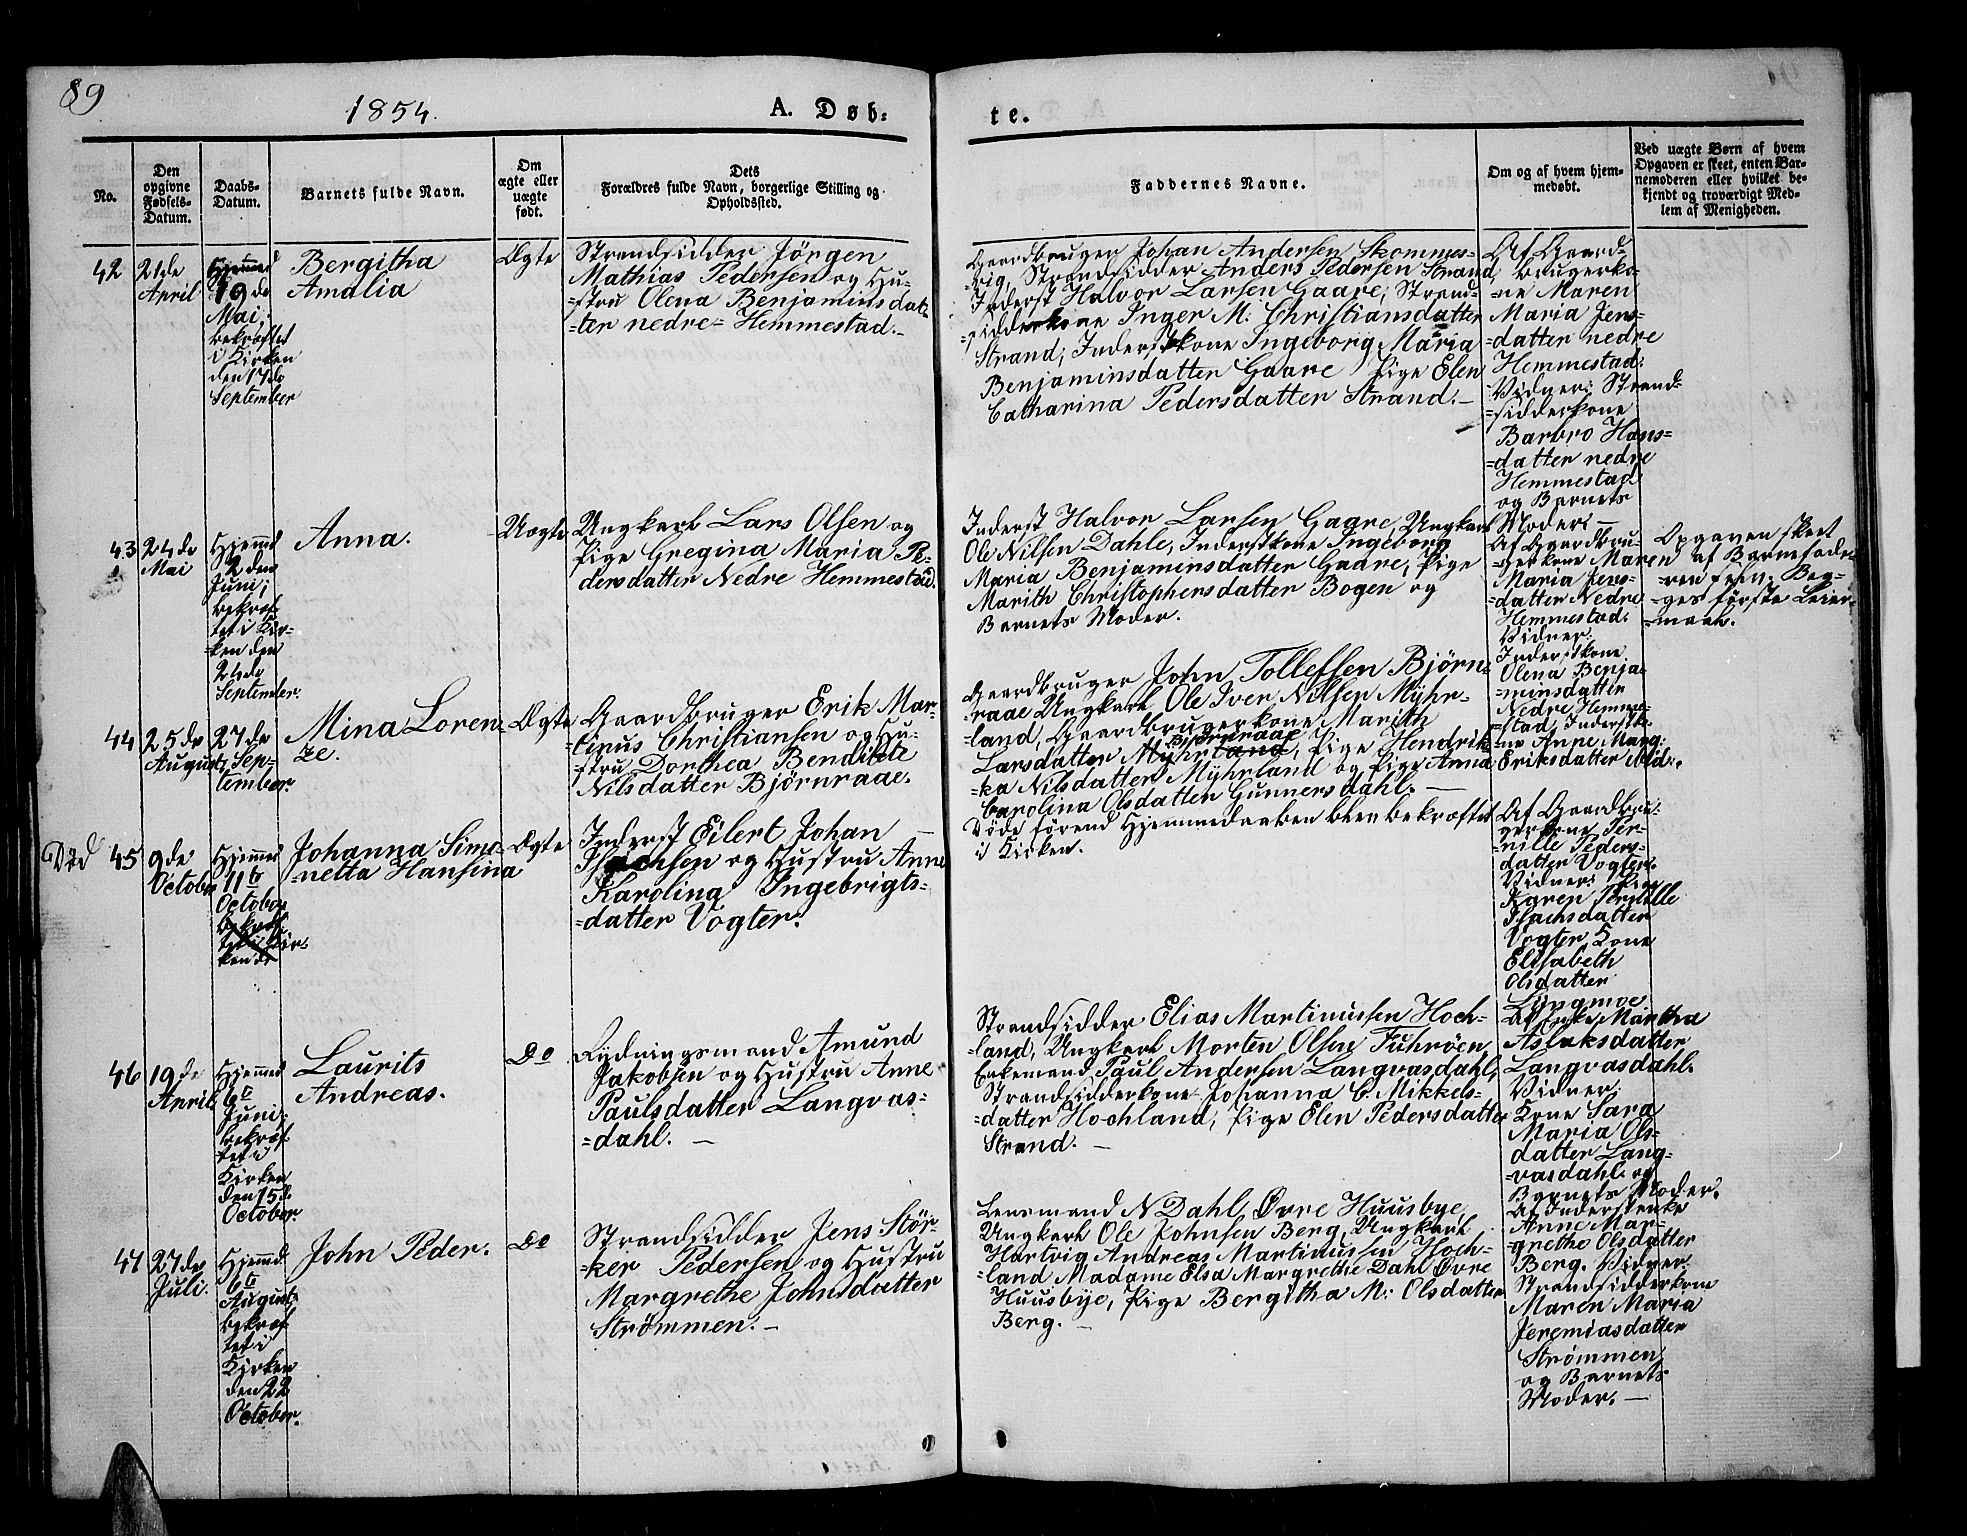 89
1854.
A. Døb-
te.
No.
Den
opgivne
Fødsels-
Datum.
Daabs-
Datum.
Barnets fulde Navn.
Om
ægte eller
uægte
født.
Dets
Forældres fulde Navn, borgerlige Stilling og
Opholdssted.
Faddernes Navne.
Om og af hvem hjem-
medøbt.
Ved uægte Børn af hvem
Opgaven er skeet, enten Bar-
nemoderen eller hvilket be-
kjendt og troværdigt Med-
lem af Menigheden.
42
21de
April
Hjemmed
19de
Mai.
bekræftet
i Kirken
den 17de
September
Bergitha
Amalia
Ægte
Strandsidder Jörgen
Mathias Pedersen og Hu-
=stru Olena Benjaminsdat-
=ter nedre= Hemmestad.-
Gaardbruger Johan Andersen Skommes-
=vig, Strandsidder Anders Pedersen Strand
Inderst Halvor Larsen Gaare, Strand-
=sidderkone Inger M: Christiansdatter
Strand, Inderstkone Ingeborg Maria
Benjaminsdatter Gaare, Pige Elen
Catharina Pedersdatter Strand.-
Af Gaard-
=brugerko-
=ne Maren
Maria Jens-
=datter nedre
Hemmestad.
Vidner: Strand-
=sidderkone
Barbro Hans-
=datter nedre
Hemmestad
og Barnets
Moder.-
43
24de
Mai
Hjemmd
2den
Juni;
bekræf-
tet i Kir-
=ken den
24de
September.
Anna.
Uægte
Ungkarl Lars Olsen og
Pige Gregina Maria Pe-
dersdatter Nedre Hemmestad.
Inderst Halvor Larsen Gaare, Ungkarl
Ole Nilsen Dahle, Inderstkone Ingeborg
Maria Benjaminsdatter Gaare, Pige
Marith Christophersdatter Bogen og
Barnets Moder.
Af Gaardbru-
=gerkone Maren
Maria Jens-
=datter Nedre
Hemmestad.
Vidner.
Inderstkone
Olena Benja-
=minsdatter
Nedre Hemme-
=stad, Inderstko-
=ne Anne Marg:
Eriksdatter ibid:.
Opgaven skeet
af Barnefade-
=ren selv. Beg-
=ges første Leier-
=maal.
44
25de
August
27de
Sep-
tember.
Mina Loren-
ze.
Ægte
Gaardbruger Erik Mar-
=tinus Christiansen og Hu-
=stru Dorthea Bendikte
Nilsdatter Bjørnraae.
Gaardbruger John Tollefsen Bjørn-
=raae Ungkarl Ole Iver Nilsen Mÿhr-
=land, Gaardbrugerkone Marith
Larsdatter Mÿhrland, Pige Hendrik-
Bjørnraae
=ka Nilsdatter Mÿhrland og Pige Anna
Carolina Olsdatter Gunnersdahl.-
Død
45
9de
October
Hjemmed
11te
October
bekræf-
tet i Kir-
ken de
Johanna Simo-
=netta Hansina
Ægte
Inderst Eilert Johan
Isachsen og Hustru Anne
Karolina Ingebrigts-
=datter Vogter.
Døde førend Hjemmedaaben blev bekræftet
i Kirken.
Af Gaardbru-
gerkone Per-
nille Peders-
datter Vogter.
Vidner: Pige
Karen Pernille
Isachsdatter
Vogter Kone
Elisabeth
Olsdatter
Lÿngmoe
46
19de
April
Hjemmed
6te
Juni;
bekræf-
tet i
Kirken
den 15de
October.
Laurits
Andreas.
Do
Rydningsmand Amund
Jakobsen og Hustru Anne
Paulsdatter Langvas-
=dahl.-
Strandsidder Elias Martinussen Hoch-
=land, Ungkarl Morten Olsen Fuhröen,
Enkemand Paul Andersen Langvasdahl,
Strandsidderkone Johanna C. Mikkels-
=datter Hochland, Pige Elen Pedersdatter
Strand.-
Af Enke Martha
Aslaksdatter
Langvasdahl.
Vidner:
Kone Sara
Maria Ols-
datter Lang-
=vasdahl og
Barnets Moder.
47
27de
Juli.
Hjemmd
6te
August,
bekræf-
tet i
Kirken
den 22
October.
John Peder.
Do
Strandsidder Jens Stör-
=ker Pedersen og Hustru
Margrethe Johnsdatter
Strømmen.-
Lensmand N Dahl Øvre Huusbye,
Ungkarl Ole Johnsen Berg, Ungkarl
Hartvig Andreas Martinussen Hoch-
=land Madame Elsa Margrethe Dahl Øvre
Huusbÿe, Pige Bergitha M: Olsdatter
Berg.-
Af Inderstenke
Anne Mar-
=grethe Olsdatter
Berg. Vidner:
Strandsidderkone
Maren Maria
Jeremiasdatter
Strømmen
og Barnets
Moder.-